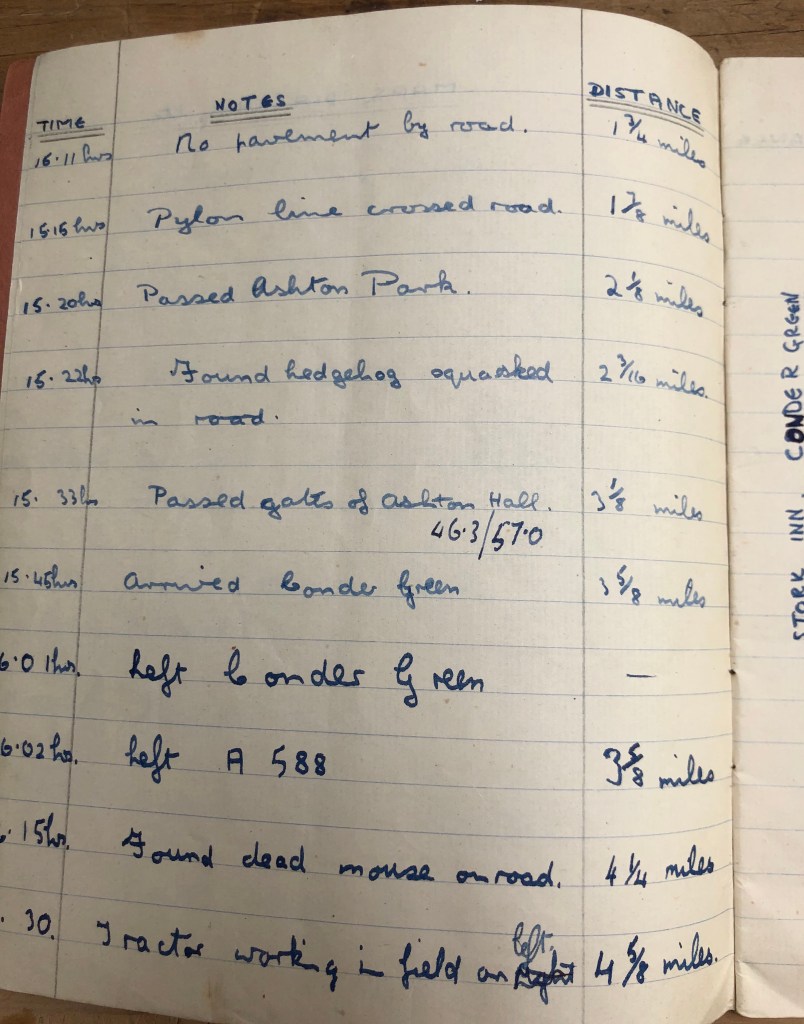 TIME NOTES DISTANCE
15.11 hrs No pavement by road. 1 3/4 miles
15.15 hrs Pylon line crossed road. 1 7/8 miles
15.20 hrs Passed Ashton Park. 2 1/8 miles
15.22 hrs Found hedgehog squashed 2 3/16 miles.
in road.
15.33 hrs Passed gates of Ashton Hall. 3 1/8 miles
46.3/57.0
15.45 hrs Arrived Conder Green 3 5/8 miles
6.01 hrs. Left Conder Green —
6.02 hrs. Left A 588 3 5/8 miles
.15 hr. Found dead mouse on road. 4 1/4 miles
left.
. 30. Tractor working in field on right 4 5/8 miles.
STORK INN, CONDER GREEN